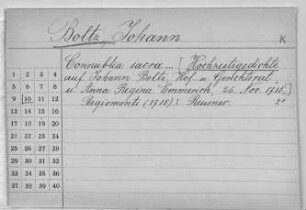 Boltz, Johann
K
Connubia sacra ... [Hochzeitsgedichte
auf Johann Boltz, Hof- u. Gerichtsrat,
u. Anna Regina Emmerich, 26. Nov. 1715.]
Regiomonti (1715): Reusner. 2°
1 2 3 4
5 6 7 8
9 10 11 12
13 14 15 16
17 18 19 20
21 22 23 24
25 26 27 28
29 30 31 32
33 34 35 36
37 38 39 40